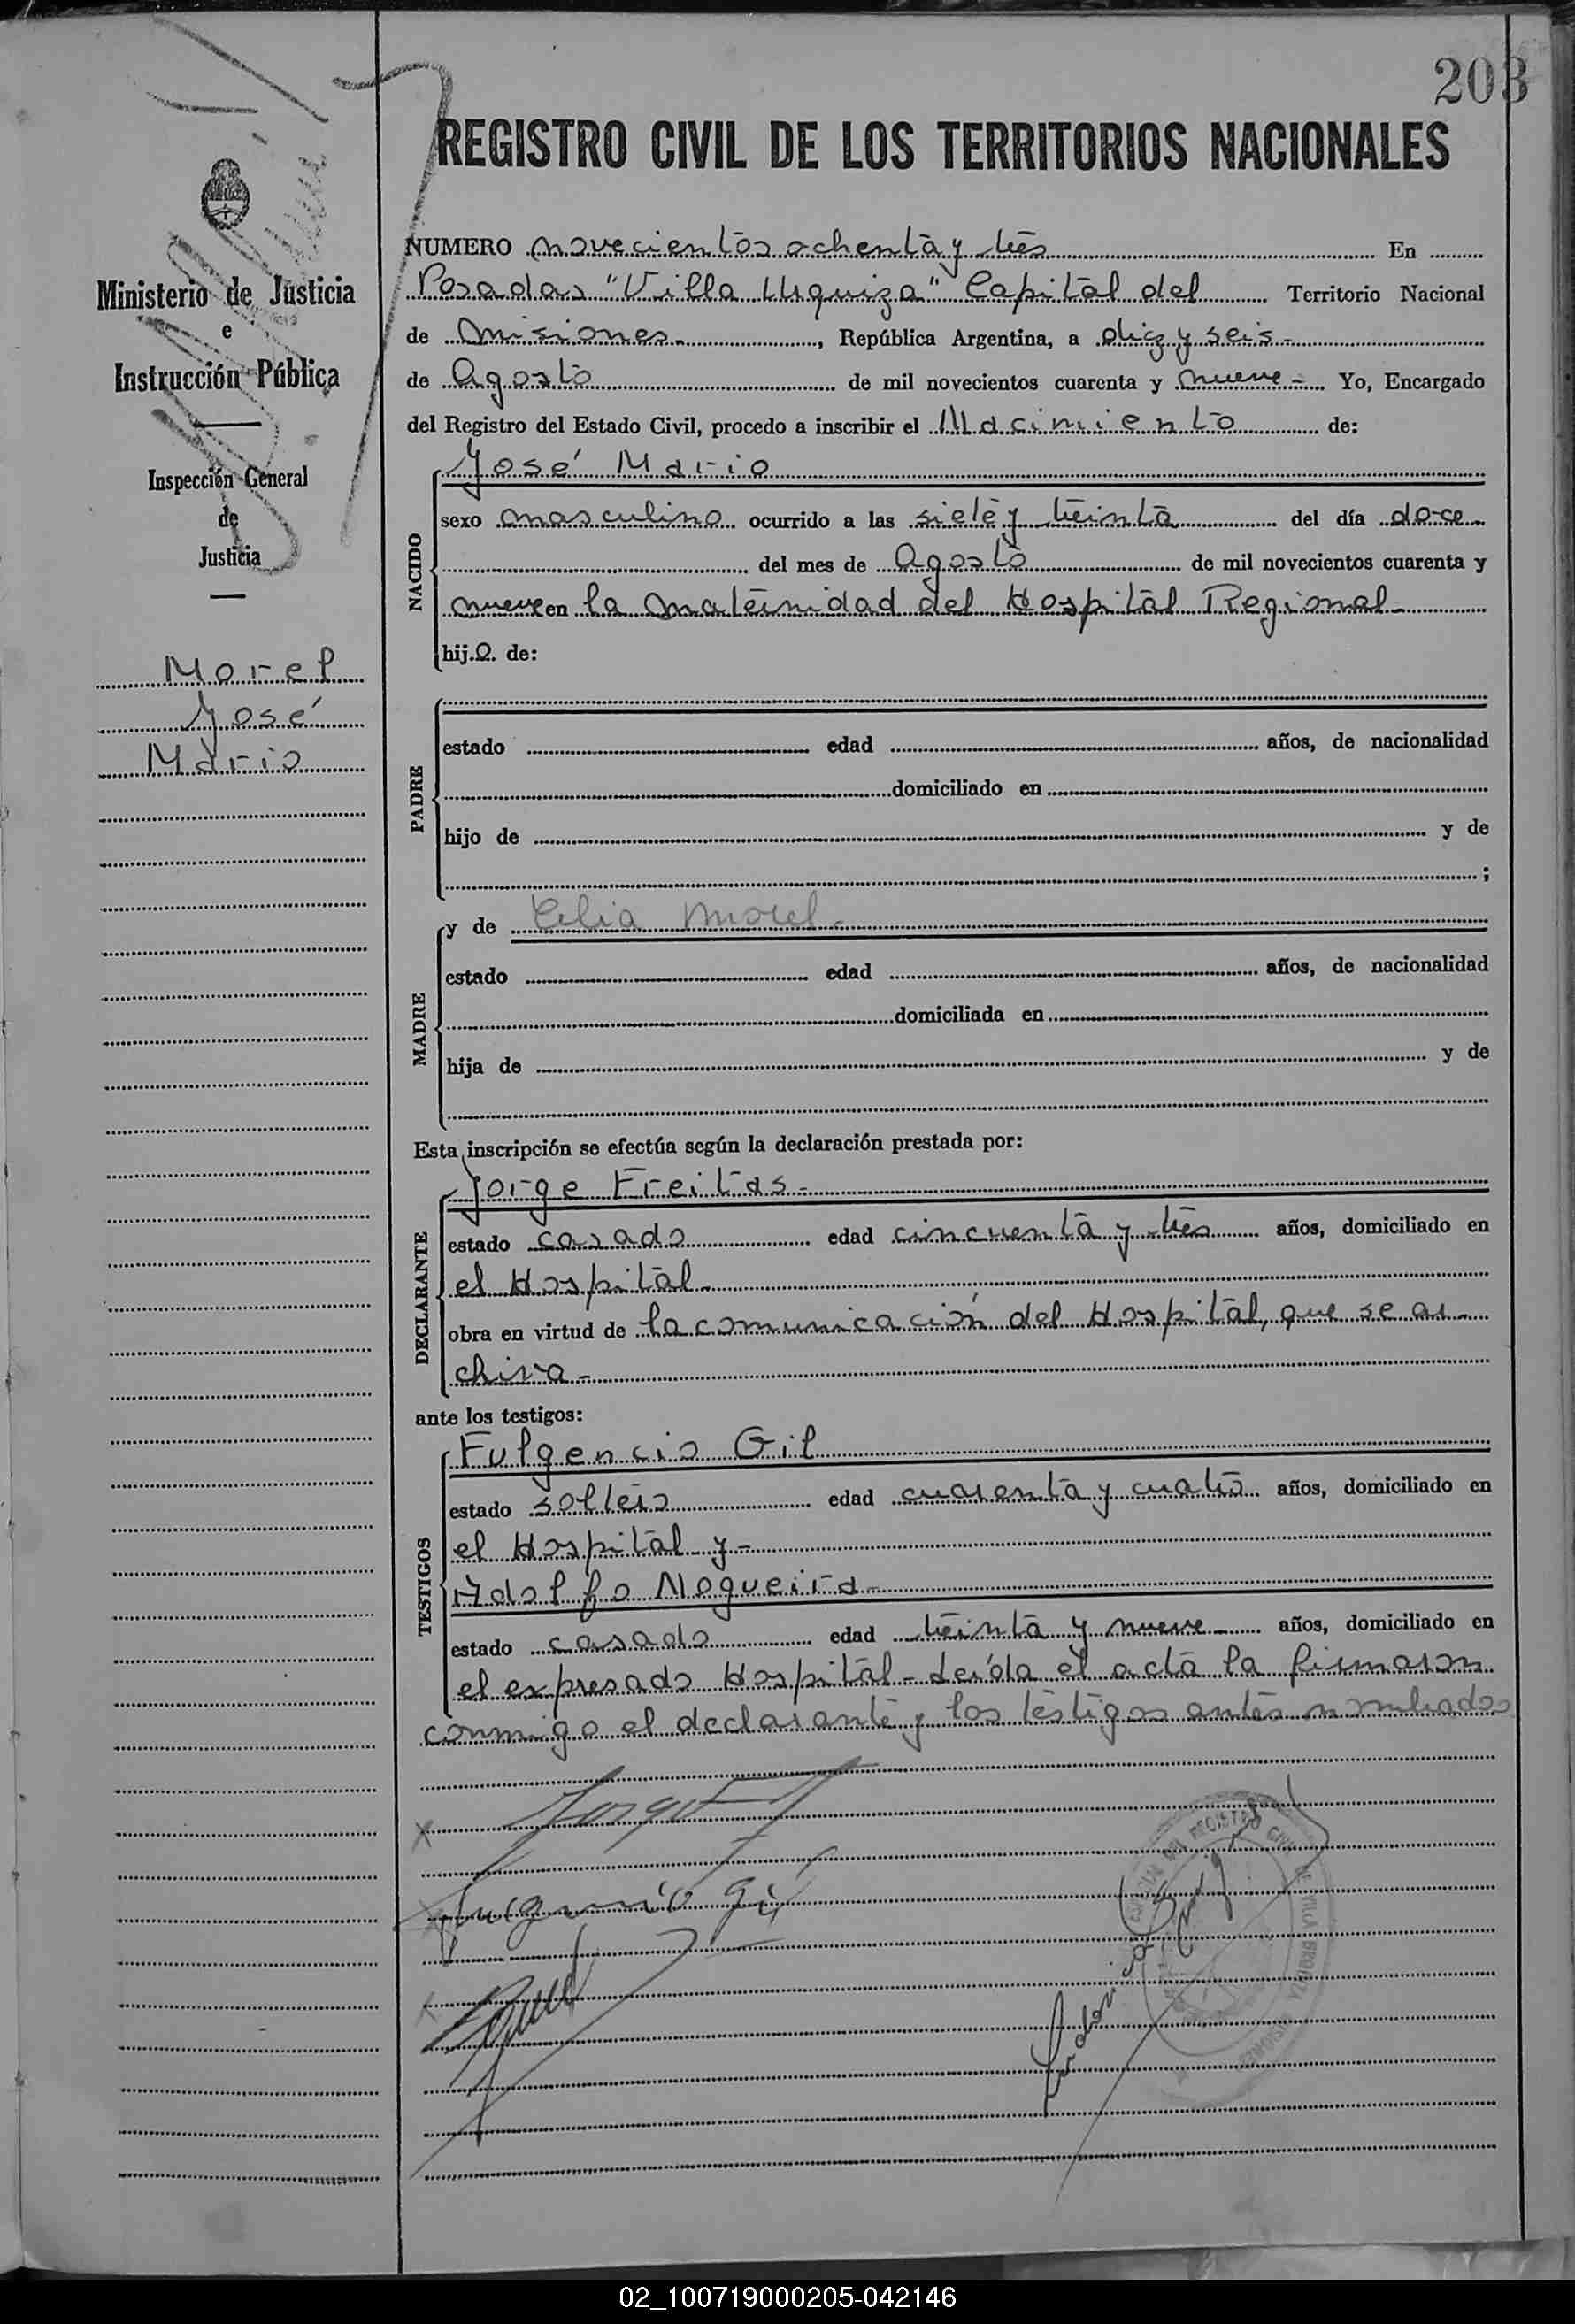 203
REGISTRO CIVIL DE LOS TERRITORIOS NACIONALES
Ministerio de Justicia
e
Instrucción Pública
Inspección General
de
Justicia
Morel
José
Mario
NUMERO novecientos ochenta y tres En
Posadas "Villa Urquiza" Capital del Territorio Nacional
de Misiones.-, República Argentina, a diez y seis-
de Agosto de mil novecientos cuarenta y nueve- Yo, Encargado
del Registro del Estado Civil, procedo a inscribir el Nacimiento de:
NACIDO
José Mario
sexo masculino ocurrido a las siete y treinta del día doce-
del mes de Agosto de mil novecientos cuarenta y
nueve en la maternidad del Hospital Regional-
hij.o. de:
PADRE
estado edad años, de nacionalidad
domiciliado en
hijo de y de
;
MADRE
y de Celia Morel-
estado edad años, de nacionalidad
domiciliada en
hija de y de
Esta inscripción se efectúa según la declaración prestada por:
DECLARANTE
Jorge Freitas-
estado casado edad cincuenta y tres años, domiciliado en
el Hospital-
obra en virtud de la comunicación del Hospital, que se ar-
chiva-
ante los testigos:
TESTIGOS
Fulgencio Gil
estado soltero edad cuarenta y cuatro años, domiciliado en
el Hospital y-
Adolfo Nogueira-
estado casado edad treinta y nueve- años, domiciliado en
el expresado Hospital- Leída el acta la firmaron
conmigo el declarante y los testigos antes nombrados
02_100719000205-042146